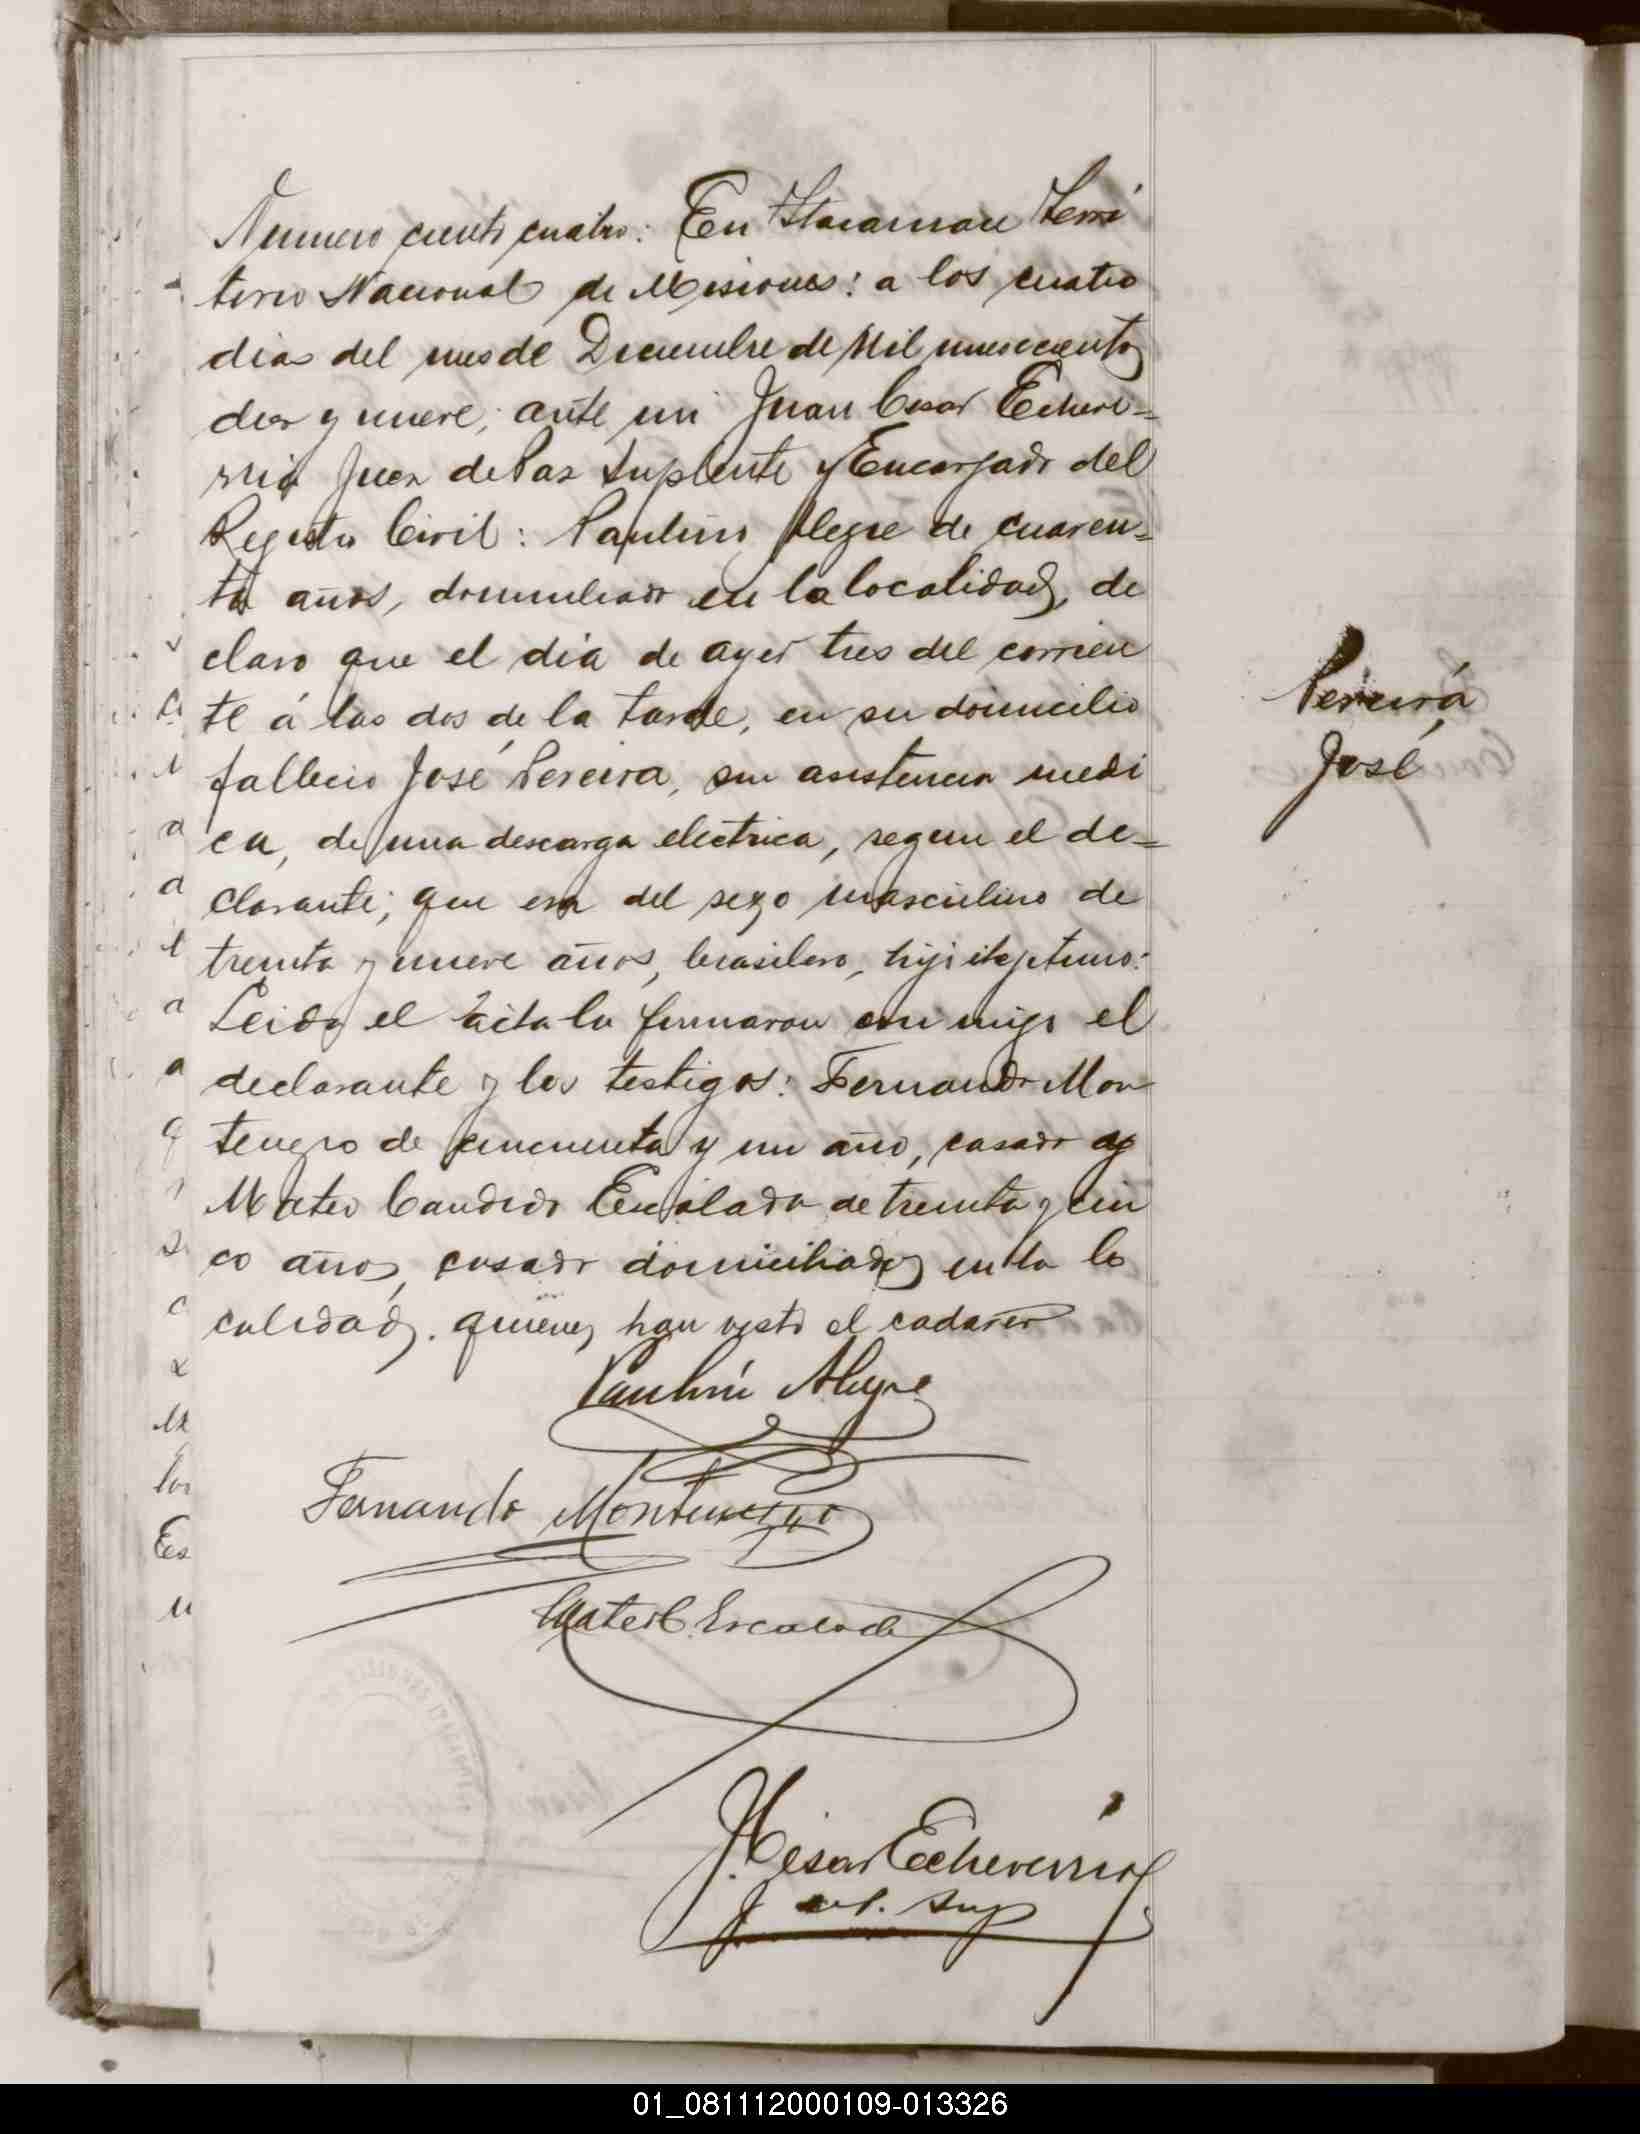 Numero ciento cuatro: En Itacaruaré Terri
torio Nacional de Misiones: a los cuatro
dias del mes de Diciembre de Mil nuevecientos
diez y nueve, ante mi Juan Cesar Echeve=
rria Juez de Paz Suplente y Encargado del
Registro Civil: Paulino Alegre de cuaren=
ta años, domiciliado en la localidad, de
claro que el dia de ayer tres del corrien
te á las dos de la tarde, en su domicilio
fallecio José Pereira, sin asistencia medi
ca, de una descarga electrica, segun el de=
clarante; que era del sexo masculino de
treinta y nueve años, brasilero, hijo ilejitimo:
Leida el acta la firmaron con migo el
declarante y los testigos: Fernando Mon
tenegro de cincuenta y un año, casado y
Mateo Candido Escalada de treinta y cin
co años, casado domiciliados en la lo
calidad. quienes han visto el cadaver
Pereira
José
Paulino Alegre
Fernando Montenegro
Mateo C. Escalada
J. Cesar Echeverria
Sup
01_081112000109-013326